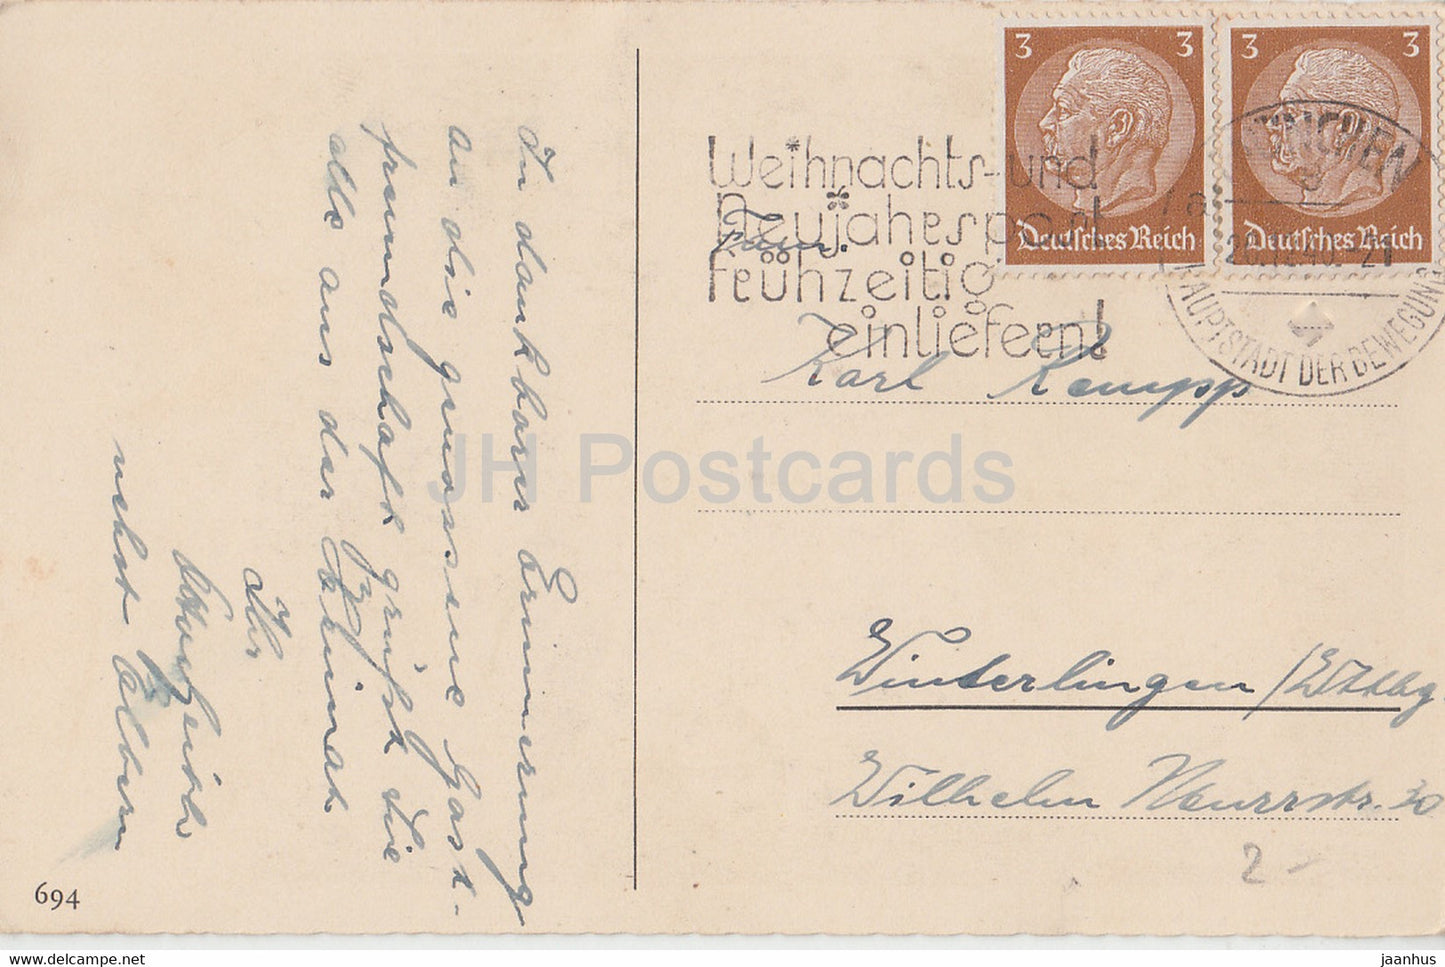 In dankbarer Erinnerung
an die genossene Gast-
freundschaft grüßt Sie
alle aus der Heimat
Ihr
nebst Eltern
694
3 3
Deutsches Reich
3 3
Deutsches Reich
Weihnachts- und
Neujahrspost
frühzeitig
einliefern!
MÜNCHEN
HAUPTSTADT DER BEWEGUNG
Fam.
Karl Kempp
Winterlingen /Wttbg
Wilhelm Murrstr. 30
2-
JH Postcards
jaanhus
delcampe.net